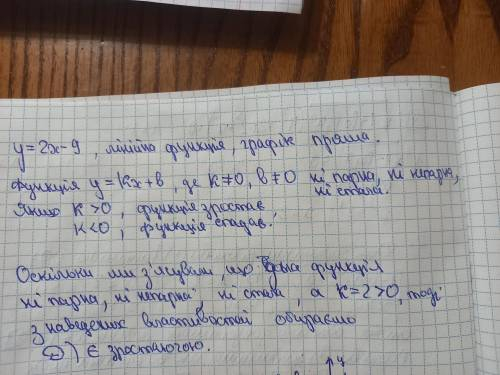 y=2x-9, лінійна функція, графік пряма.
Функція y=kx+b, де k≠0, b≠0 ні парна, ні непарна,
ні стала.
Якщо k>0, функція зростає,
k<0, функція спадає.
Оскільки ми з'ясували, що дана функція
ні парна, ні непарна, ні стала, а k=2>0, тоді
з наведених властивостей обираємо
Д) є зростаючою.
y